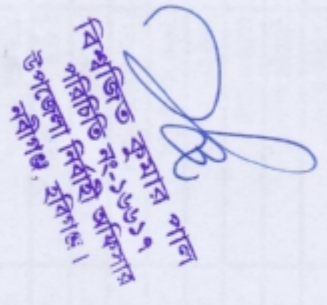 বিশ্বজিত কুমার পাল
পরিচিতি নং-১৬৬১৭
উপজেলা নির্বাহী অফিসার
নবীগঞ্জ, হবিগঞ্জ।